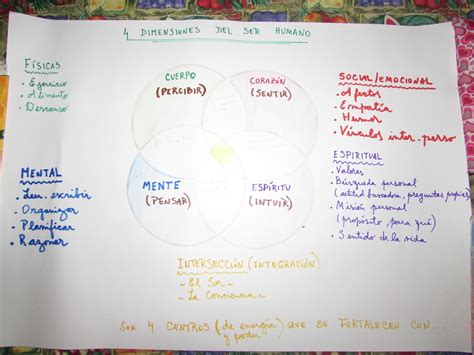 4 DIMENSIONES DEL SER HUMANO
FÍSICAS
• Ejercicio
• Alimento
• Descanso
CUERPO
(PERCIBIR)
CORAZÓN
(SENTIR)
SOCIAL/EMOCIONAL
• Afectos
• Empatía
• Humor
• Vínculos inter.perso
MENTAL
• Leer, escribir
• Organizar
• Planificar
• Razonar
MENTE
(PENSAR)
ESPÍRITU
(INTUIR)
ESPIRITUAL
• Valores
• Búsqueda personal
(actitud buscadora, preguntas propias)
• Misión personal
(propósito, para qué)
• Sentido de la vida
INTERSECCIÓN (INTEGRACIÓN)
~ El Ser ~
~ La Conciencia ~
SON 4 CENTROS (de energía) QUE SE FORTALECEN CON...
y poder